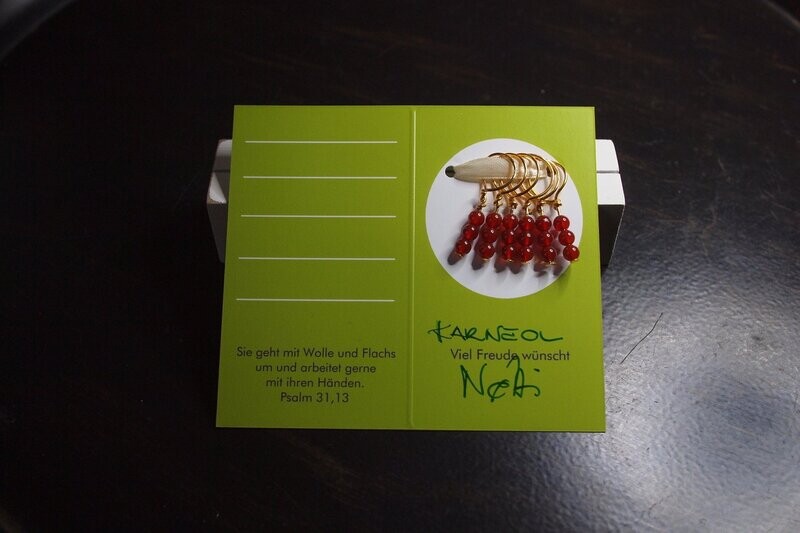 Sie geht mit Wolle und Flachs
um und arbeitet gerne
mit ihren Händen.
Psalm 31,13
KARNEOL
Viel Freude wünscht